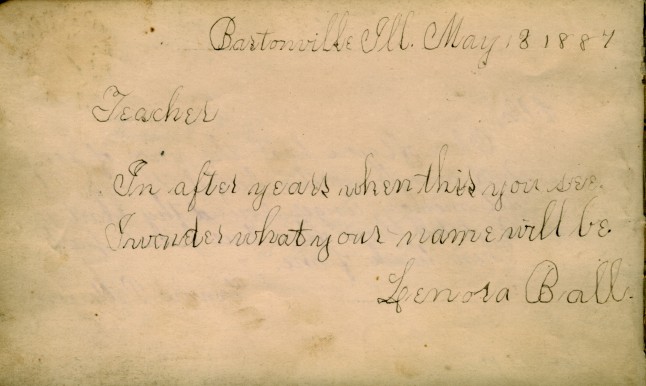 Bartonville Ill. May 18 1887
Teacher
In after years when this you see.
I wonder what your name will be.
Lenora Ball.